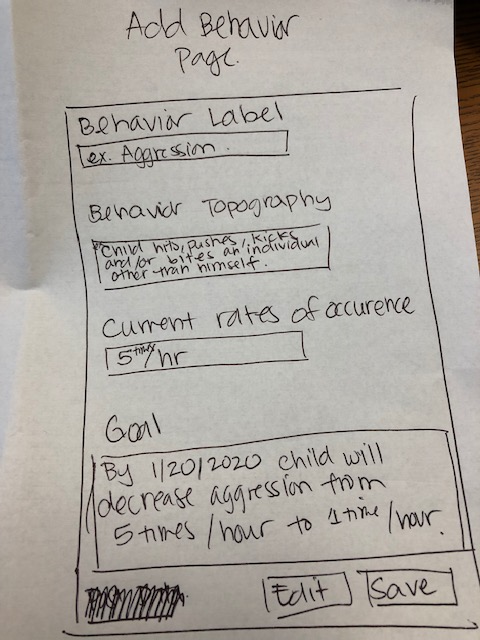 Add Behavior
Page.
Behavior Label
ex. Aggression.
Behavior Topography
"Child hits, pushes, kicks
and/or bites an individual
other than himself.
Current rates of occurence
5 times/hr
Goal
By 1/20/2020 child will
decrease aggression from
5 times /hour to 1 time /hour.
Edit Save